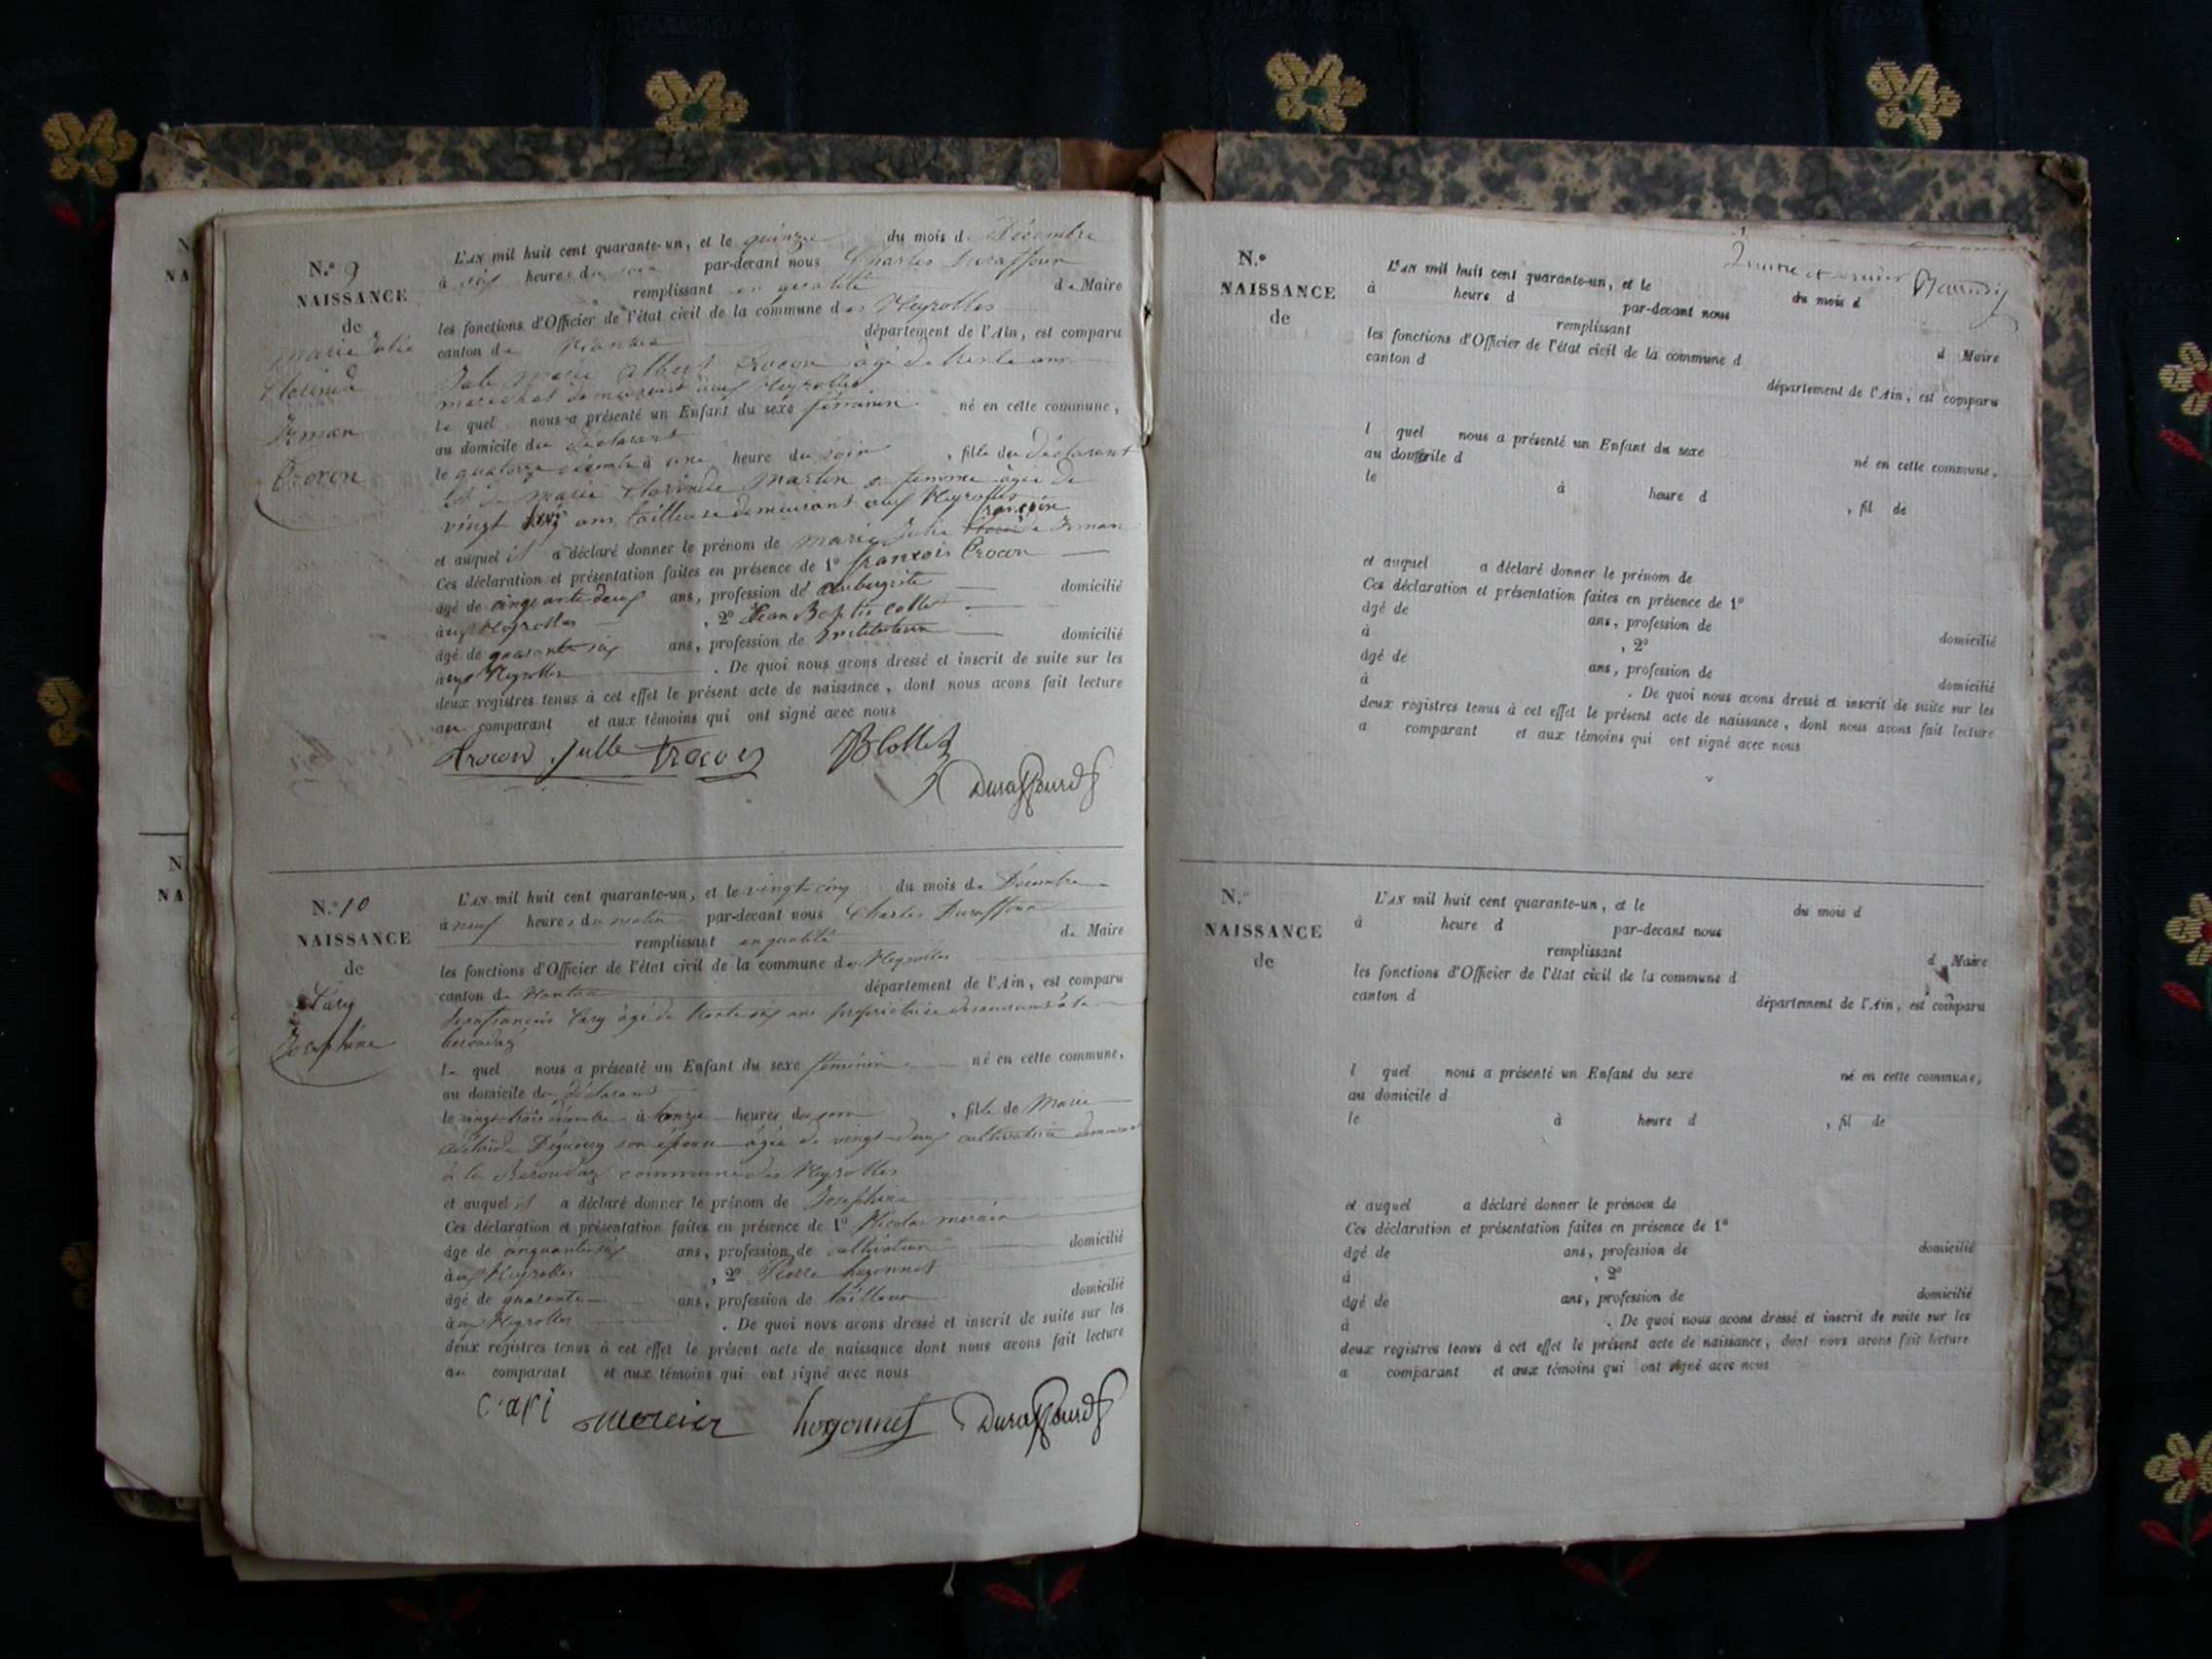 N.° 9
NAISSANCE
de
Marie Julie
Crocon
L'AN mil huit cent quarante-un, et le quinze du mois de Décembre
à six heures du soir par-devant nous Charles Duraffour
remplissant en qualité de Maire
les fonctions d'Officier de l'état civil de la commune des Neyrolles
canton de Nantua département de l'Ain, est comparu
Jule Marie Albert Crocon âgé de trente ans
marechal demeurant aux Neyrolles
le quel nous a présenté un Enfant du sexe féminin né en cette commune,
au domicile du déclarant
le quatorze décembre à une heure du soir, fille du déclarant
et de marie Clorinde Martin sa femme âgée de
vingt ans tailleuse demeurant aux Neyrolles
et auquel il a déclaré donner le prénom de marie Julie
Ces déclaration et présentation faites en présence de 1° françois Crocon
âgé de cinquante deux ans, profession de aubergiste domicilié
aux Neyrolles, 2° Jean Baptiste Collet
âgé de quarante six ans, profession de Instituteur domicilié
aux Neyrolles. De quoi nous avons dressé et inscrit de suite sur les
deux registres tenus à cet effet le présent acte de naissance, dont nous avons fait lecture
au comparant et aux témoins qui ont signé avec nous
Crocon Julle Crocon JB Collet
Duraffourd
N.° 10
NAISSANCE
de
Cary
Josephine
L'AN mil huit cent quarante-un, et le vingt-cinq du mois de Décembre
à neuf heures du matin par-devant nous Charles Duraffour
remplissant en qualité de Maire
les fonctions d'Officier de l'état civil de la commune des Neyrolles
canton de Nantua département de l'Ain, est comparu
Jean françois Cary âgé de trente six ans propriétaire demeurant à la
le quel nous a présenté un Enfant du sexe féminin né en cette commune,
au domicile du déclarant
le vingt-trois décembre à onze heures du soir, fille de Marie
son épouse âgée de vingt-deux cultivatrice demeurant
à la commune des Neyrolles
et auquel il a déclaré donner le prénom de Josephine
Ces déclaration et présentation faites en présence de 1° Nicolas mercier
âgé de cinquante six ans, profession de cultivateur domicilié
aux Neyrolles, 2° Pierre hugonnet
âgé de quarante ans, profession de tailleur domicilié
aux Neyrolles. De quoi nous avons dressé et inscrit de suite sur les
deux registres tenus à cet effet le présent acte de naissance dont nous avons fait lecture
au comparant et aux témoins qui ont signé avec nous
cari mercier hugonnet Duraffourd
N.°
NAISSANCE
de
L'AN mil huit cent quarante-un, et le du mois d
à heure d par-devant nous
remplissant d Maire
les fonctions d'Officier de l'état civil de la commune d
canton d département de l'Ain, est comparu
l quel nous a présenté un Enfant du sexe né en cette commune,
au domicile d
le à heure d, fil de
et auquel a déclaré donner le prénom de
Ces déclaration et présentation faites en présence de 1°
âgé de ans, profession de domicilié
à, 2°
âgé de ans, profession de domicilié
à. De quoi nous avons dressé et inscrit de suite sur les
deux registres tenus à cet effet le présent acte de naissance, dont nous avons fait lecture
a comparant et aux témoins qui ont signé avec nous
N.°
NAISSANCE
de
L'AN mil huit cent quarante-un, et le du mois d
à heure d par-devant nous
remplissant d Maire
les fonctions d'Officier de l'état civil de la commune d
canton d département de l'Ain, est comparu
l quel nous a présenté un Enfant du sexe né en cette commune,
au domicile d
le à heure d, fil de
et auquel a déclaré donner le prénom de
Ces déclaration et présentation faites en présence de 1°
âgé de ans, profession de domicilié
à, 2°
âgé de ans, profession de domicilié
à. De quoi nous avons dressé et inscrit de suite sur les
deux registres tenus à cet effet le présent acte de naissance, dont nous avons fait lecture
a comparant et aux témoins qui ont signé avec nous